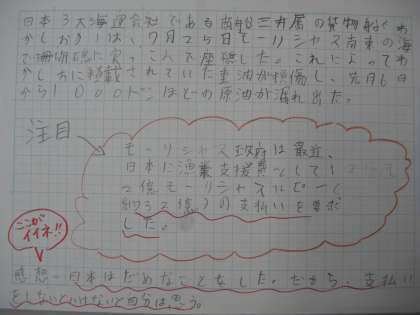 日本3大海運会社である商船三井属の貨物船「わ
かしお」は、7月25日モーリシャス南東の海
で珊瑚礁に突っこんで座礁した。これによってわ
かしおに積載されていた重油が損傷し、先月6日
から1000トンほどの原油が漏れ出た。
注目
モーリシャス政府は最近、
日本に漁業支援費として1
2億モーリシャスルピー(
約32億)の支払いを要求
した。
ここが
イイネ!!
感想-日本はだめなことをした。だから、支払い
をしないといけないと自分は思う。